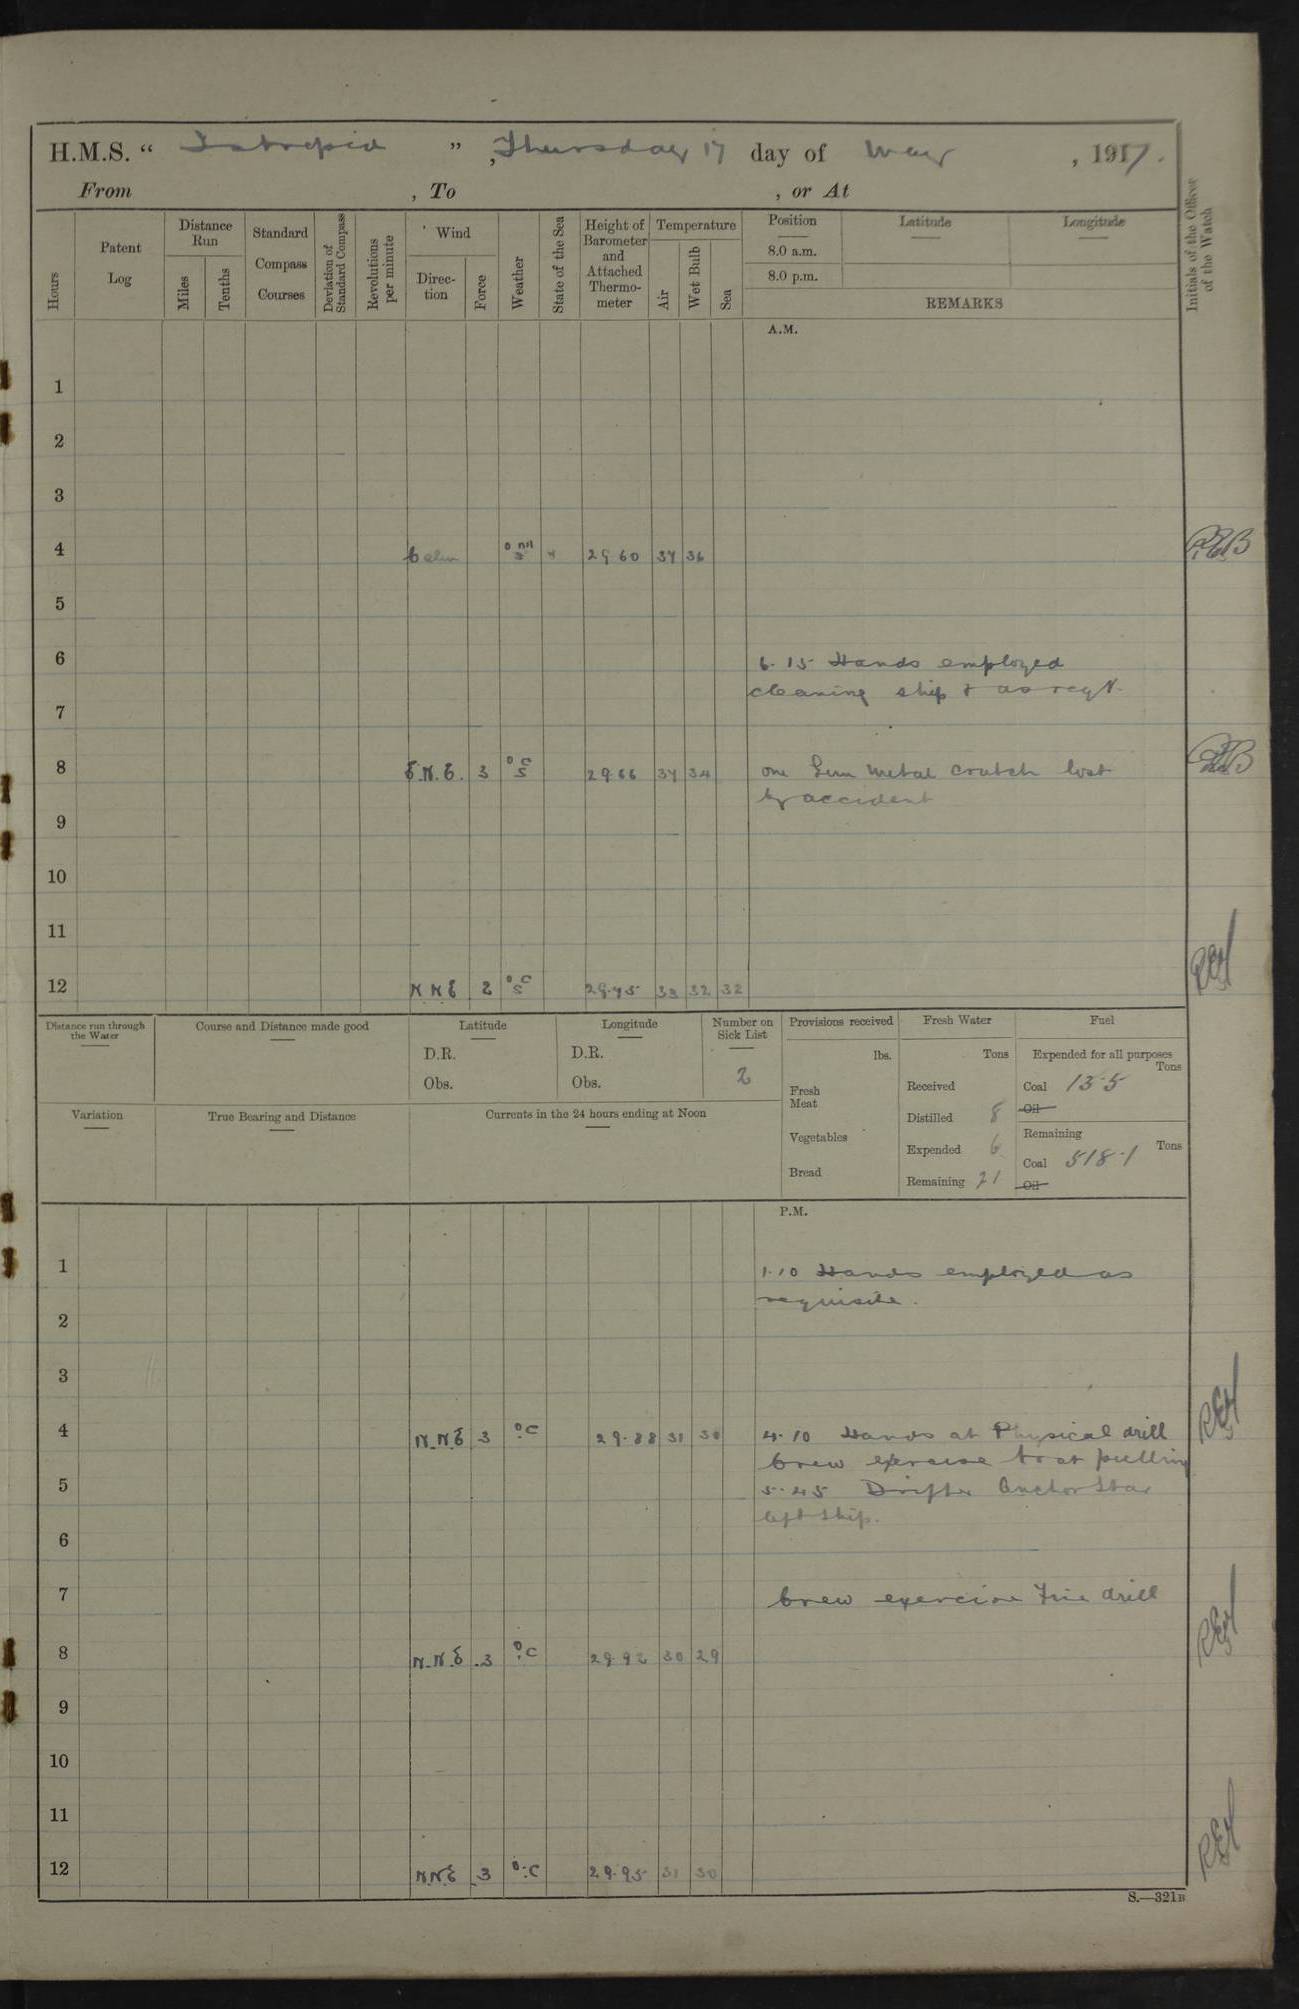 H.M.S. “ Intrepid ” , Thursday 17 day of May , 1917.
From , To , or At
Hours
Patent Log
Distance Run
Miles
Tenths
Standard Compass Courses
Deviation of Standard Compass
Revolutions per minute
Wind
Direction
Force
Weather
State of the Sea
Height of Barometer and Attached Thermometer
Temperature
Air
Wet Bulb
Sea
Position
8.0 a.m.
8.0 p.m.
Latitude
Longitude
REMARKS
Initials of the Officer of the Watch
A.M.
1
2
3
4 Calm 29 60 37 36
5
6 6.15 Hands employed
cleaning ship & as reqt.
7
8 E.N.E. 3 oc s 29.66 34 one Gun metal crutch lost
by accident
9
10
11
12 N N E 2 oc s 29.75 33 32 32
Distance run through the Water
Course and Distance made good
Latitude
D.R.
Obs.
Longitude
D.R.
Obs.
Number on Sick List
2
Provisions received
lbs.
Fresh Meat
Vegetables
Bread
Fresh Water
Tons
Received
Distilled 8
Expended 6
Remaining 21
Fuel
Expended for all purposes
Tons
Coal 13.5
Oil
Remaining
Tons
Coal 518.1
Oil
Variation
True Bearing and Distance
Currents in the 24 hours ending at Noon
P.M.
1 1.10 Hands employed as
requisite.
2
3
4 N.N.E 3 o.c 29.88 31 30 4.10 Hands at Physical drill
Crew exercise boat pulling
5 5.45 Drifter Anchor Star
left ship.
6
7 Crew exercise Fire drill
8 N.N.E 3 o.c 29.92 30 29
9
10
11
12 N.N.E 3 o.c 29.95 31 30
S.—321B